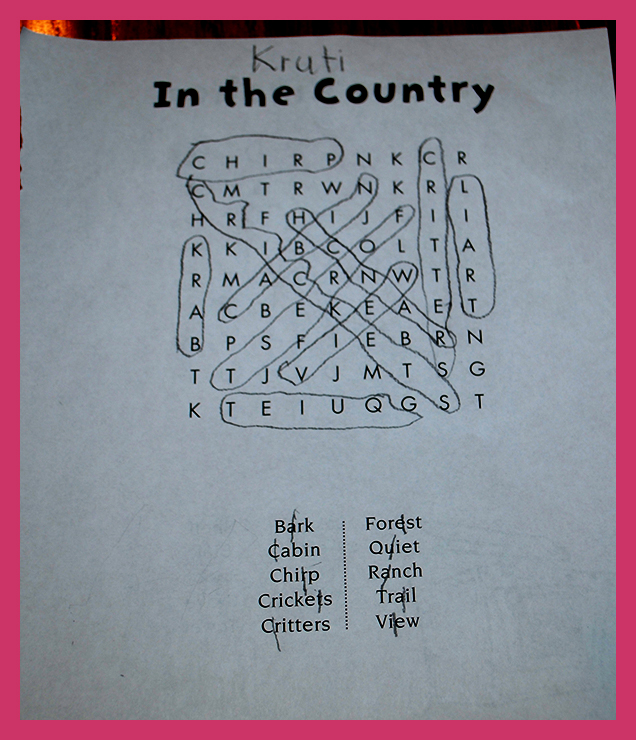 Kruti
In the Country
C H I R P N K C R
C M T R W N K R L
H R F H I J F I I
K K I B C O L T A
R M A C R N W T R
A C B E K E A E T
B P S F I E B R N
T T J V J M T S G
K T E I U Q G S T
Bark
Cabin
Chirp
Crickets
Critters
Forest
Quiet
Ranch
Trail
View